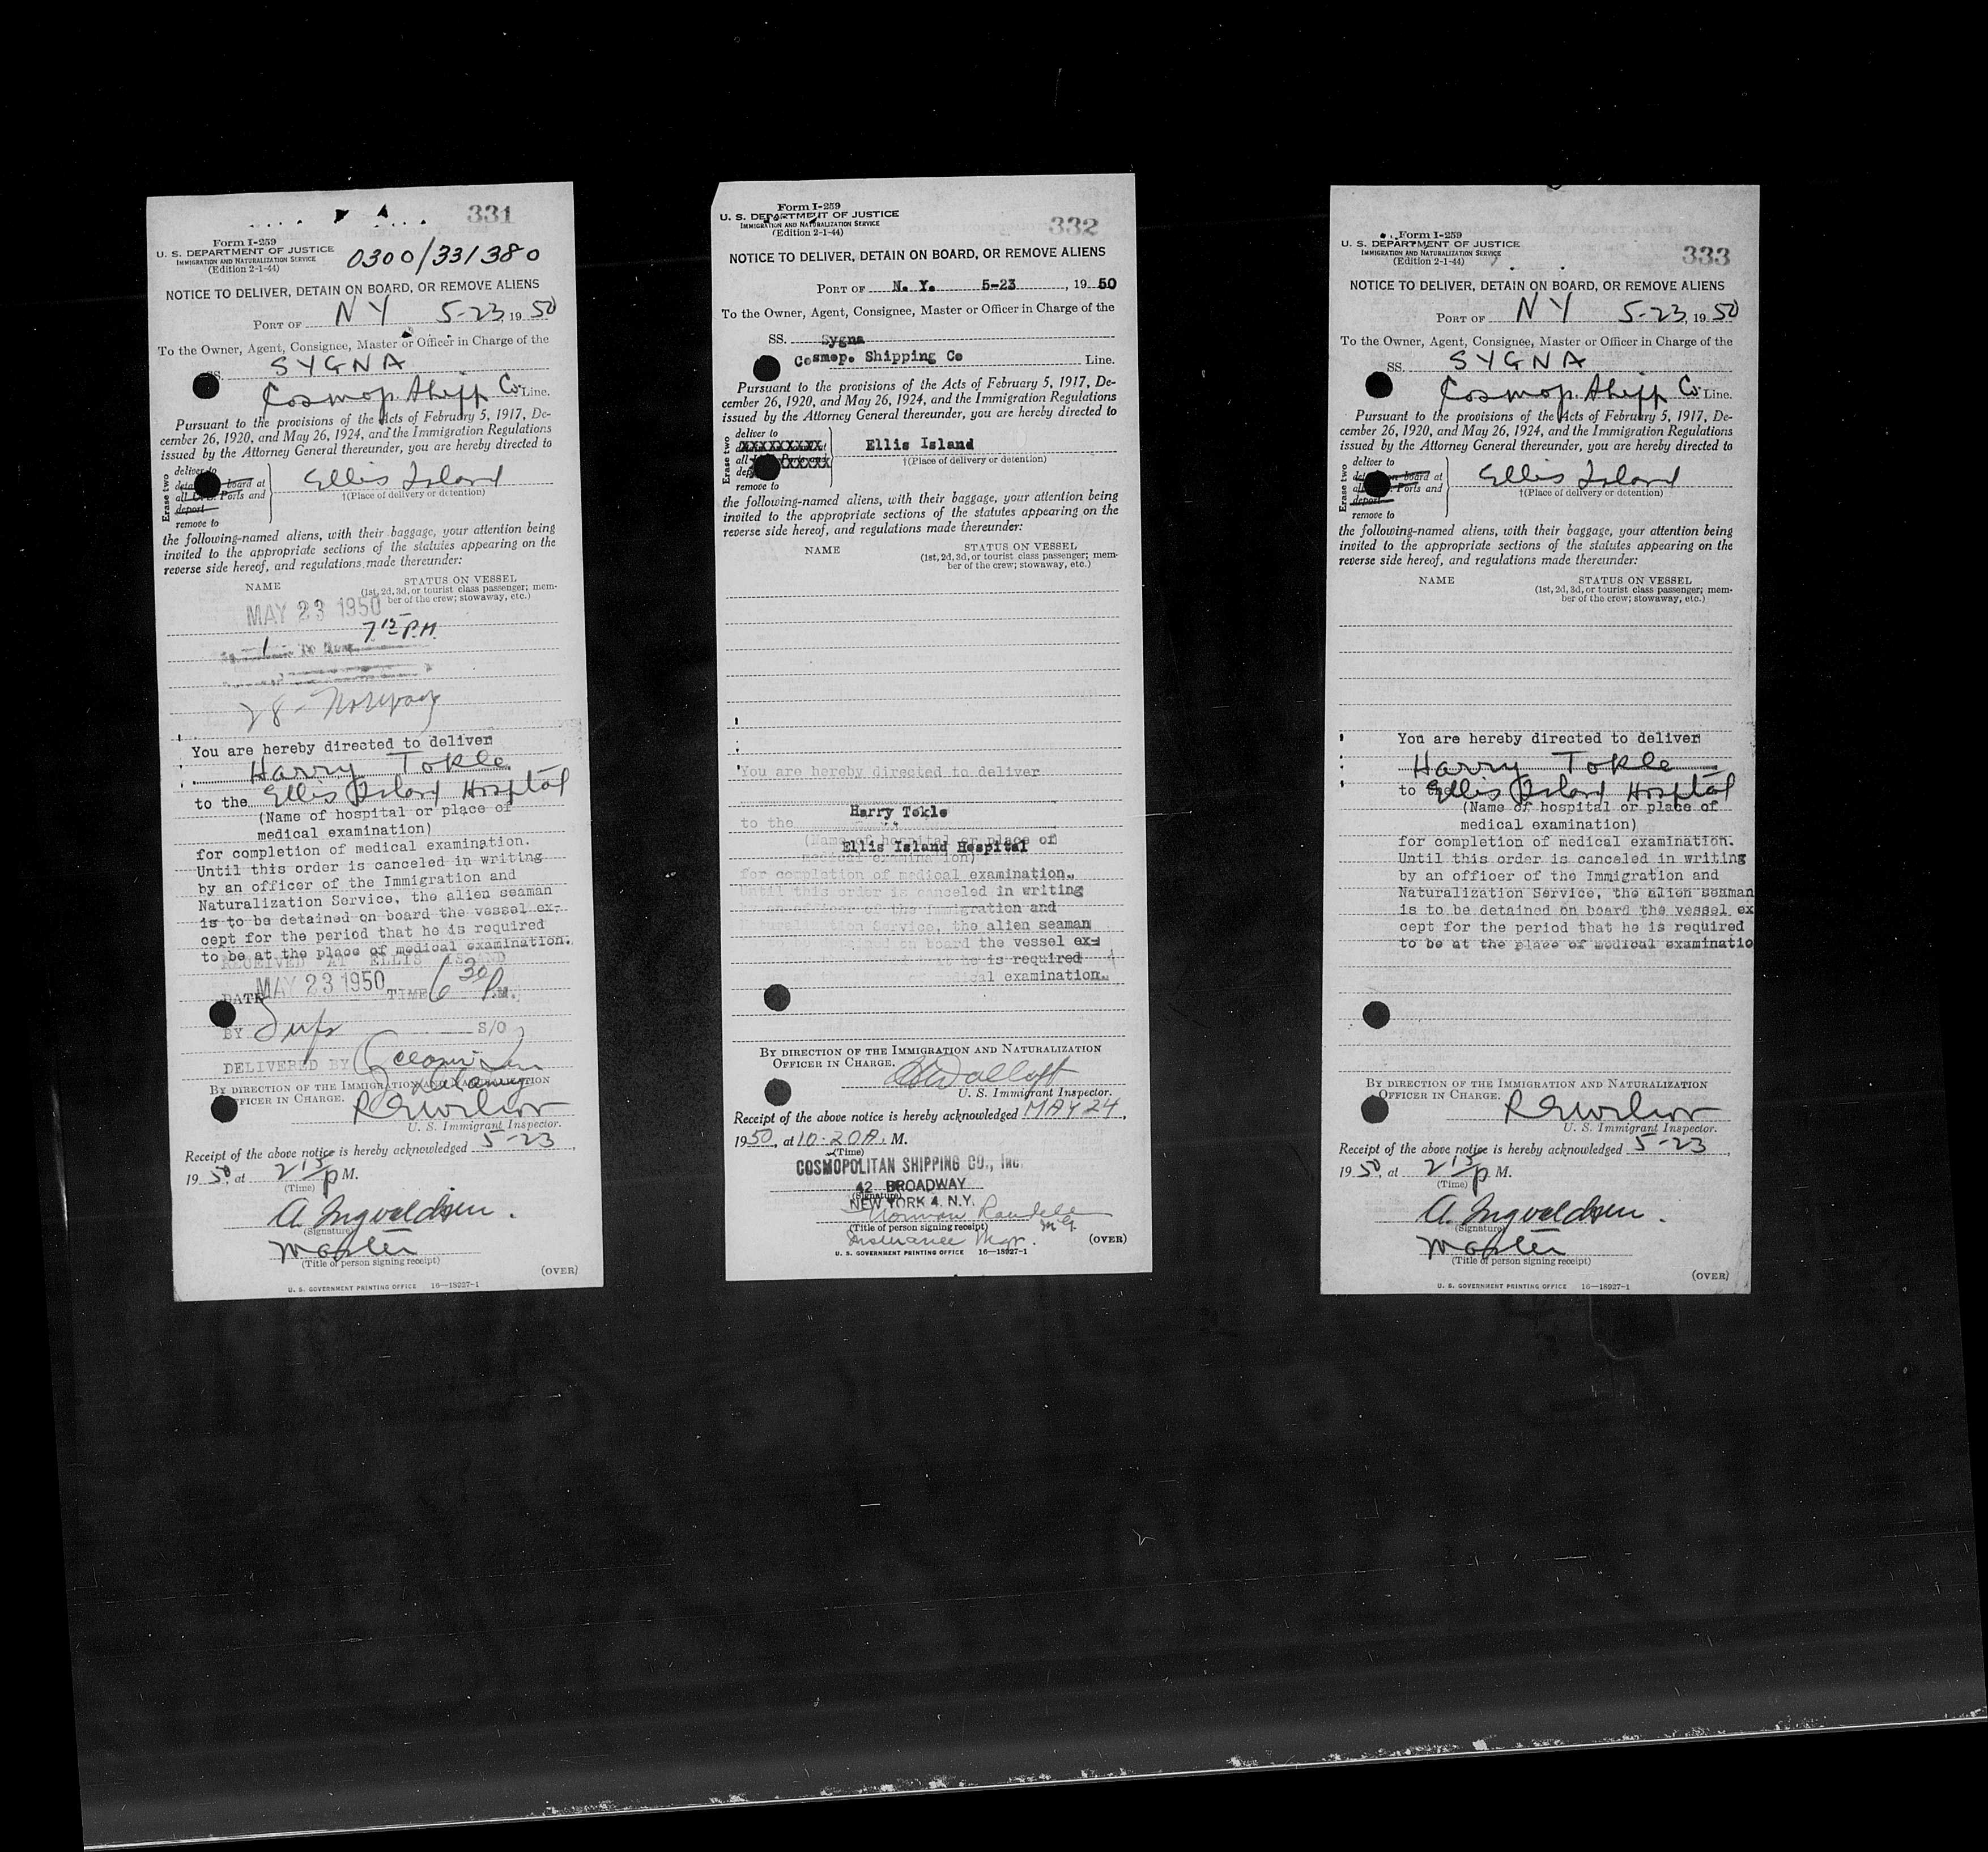 331
Form I-259
U. S. DEPARTMENT OF JUSTICE
IMMIGRATION AND NATURALIZATION SERVICE
(Edition 2-1-44)
0300/331380
NOTICE TO DELIVER, DETAIN ON BOARD, OR REMOVE ALIENS
PORT OF NY 5-23, 19 50
To the Owner, Agent, Consignee, Master or Officer in Charge of the
SS. SYGNA
Cosmop. Shipp Co. Line.
Pursuant to the provisions of the Acts of February 5, 1917, De-
cember 26, 1920, and May 26, 1924, and the Immigration Regulations
issued by the Attorney General thereunder, you are hereby directed to
Erase two
deliver to
board at
all U.S. Ports and
deport
remove to
Ellis Island
†(Place of delivery or detention)
the following-named aliens, with their baggage, your attention being
invited to the appropriate sections of the statutes appearing on the
reverse side hereof, and regulations made thereunder:
NAME STATUS ON VESSEL
(1st, 2d, 3d, or tourist class passenger; mem-
ber of the crew; stowaway, etc.)
MAY 23 1950
7 15 P.M.
28 - Norway
You are hereby directed to deliver
Harry Tokle
to the Ellis Island Hospital
(Name of hospital or place of
medical examination)
for completion of medical examination.
Until this order is canceled in writing
by an officer of the Immigration and
Naturalization Service, the alien seaman
is to be detained on board the vessel ex-
cept for the period that he is required
to be at the place of medical examination.
RECEIVED AT ELLIS ISLAND
DATE MAY 23 1950 TIME 6 30 P.M.
BY S/O
DELIVERED BY
BY DIRECTION OF THE IMMIGRATION AND NATURALIZATION
OFFICER IN CHARGE.
U. S. Immigrant Inspector.
Receipt of the above notice is hereby acknowledged 5-23,
19 50, at 2 15 P M.
(Time)
A. Ingvaldsen.
(Signature)
Master
(Title of person signing receipt)
(OVER)
U. S. GOVERNMENT PRINTING OFFICE 16—18927-1
332
Form I-259
U. S. DEPARTMENT OF JUSTICE
IMMIGRATION AND NATURALIZATION SERVICE
(Edition 2-1-44)
NOTICE TO DELIVER, DETAIN ON BOARD, OR REMOVE ALIENS
PORT OF N. Y. 5-23, 19 50
To the Owner, Agent, Consignee, Master or Officer in Charge of the
SS. Sygna
Cosmop. Shipping Co Line.
Pursuant to the provisions of the Acts of February 5, 1917, De-
cember 26, 1920, and May 26, 1924, and the Immigration Regulations
issued by the Attorney General thereunder, you are hereby directed to
Erase two
deliver to
XXXXXXXXX
all XXXXXX
remove to
Ellis Island
†(Place of delivery or detention)
the following-named aliens, with their baggage, your attention being
invited to the appropriate sections of the statutes appearing on the
reverse side hereof, and regulations made thereunder:
NAME STATUS ON VESSEL
(1st, 2d, 3d, or tourist class passenger; mem-
ber of the crew; stowaway, etc.)
You are hereby directed to deliver
Harry Tokle
to the
(Name of hospital or place of
Ellis Island Hospital
medical examination)
for completion of medical examination.
Until this order is canceled in writing
by an officer of the Immigration and
Naturalization Service, the alien seaman
on board the vessel ex-
he is required
medical examination.
BY DIRECTION OF THE IMMIGRATION AND NATURALIZATION
OFFICER IN CHARGE.
U. S. Immigrant Inspector.
Receipt of the above notice is hereby acknowledged MAY 24,
1950, at 10-20 A. M.
(Time)
COSMOPOLITAN SHIPPING CO., INC.
42 BROADWAY
(Signature)
NEW YORK 4, N.Y.
Norman
(Title of person signing receipt)
Insurance Mgr.
(OVER)
U. S. GOVERNMENT PRINTING OFFICE 16—18927-1
333
Form I-259
U. S. DEPARTMENT OF JUSTICE
IMMIGRATION AND NATURALIZATION SERVICE
(Edition 2-1-44)
NOTICE TO DELIVER, DETAIN ON BOARD, OR REMOVE ALIENS
PORT OF NY 5-23, 19 50
To the Owner, Agent, Consignee, Master or Officer in Charge of the
SS. SYGNA
Cosmop. Shipp Co. Line.
Pursuant to the provisions of the Acts of February 5, 1917, De-
cember 26, 1920, and May 26, 1924, and the Immigration Regulations
issued by the Attorney General thereunder, you are hereby directed to
Erase two
deliver to
on board at
Ports and
deport
remove to
Ellis Island
†(Place of delivery or detention)
the following-named aliens, with their baggage, your attention being
invited to the appropriate sections of the statutes appearing on the
reverse side hereof, and regulations made thereunder:
NAME STATUS ON VESSEL
(1st, 2d, 3d, or tourist class passenger; mem-
ber of the crew; stowaway, etc.)
You are hereby directed to deliver
Harry Tokle
to the Ellis Island Hospital
(Name of hospital or place of
medical examination)
for completion of medical examination.
Until this order is canceled in writing
by an officer of the Immigration and
Naturalization Service, the alien seaman
is to be detained on board the vessel ex
cept for the period that he is required
to be at the place of medical examinatio
BY DIRECTION OF THE IMMIGRATION AND NATURALIZATION
OFFICER IN CHARGE.
U. S. Immigrant Inspector.
Receipt of the above notice is hereby acknowledged 5-23,
19 50, at 2 15 P M.
(Time)
A. Ingvaldsen.
(Signature)
Master
(Title of person signing receipt)
(OVER)
U. S. GOVERNMENT PRINTING OFFICE 16—18927-1